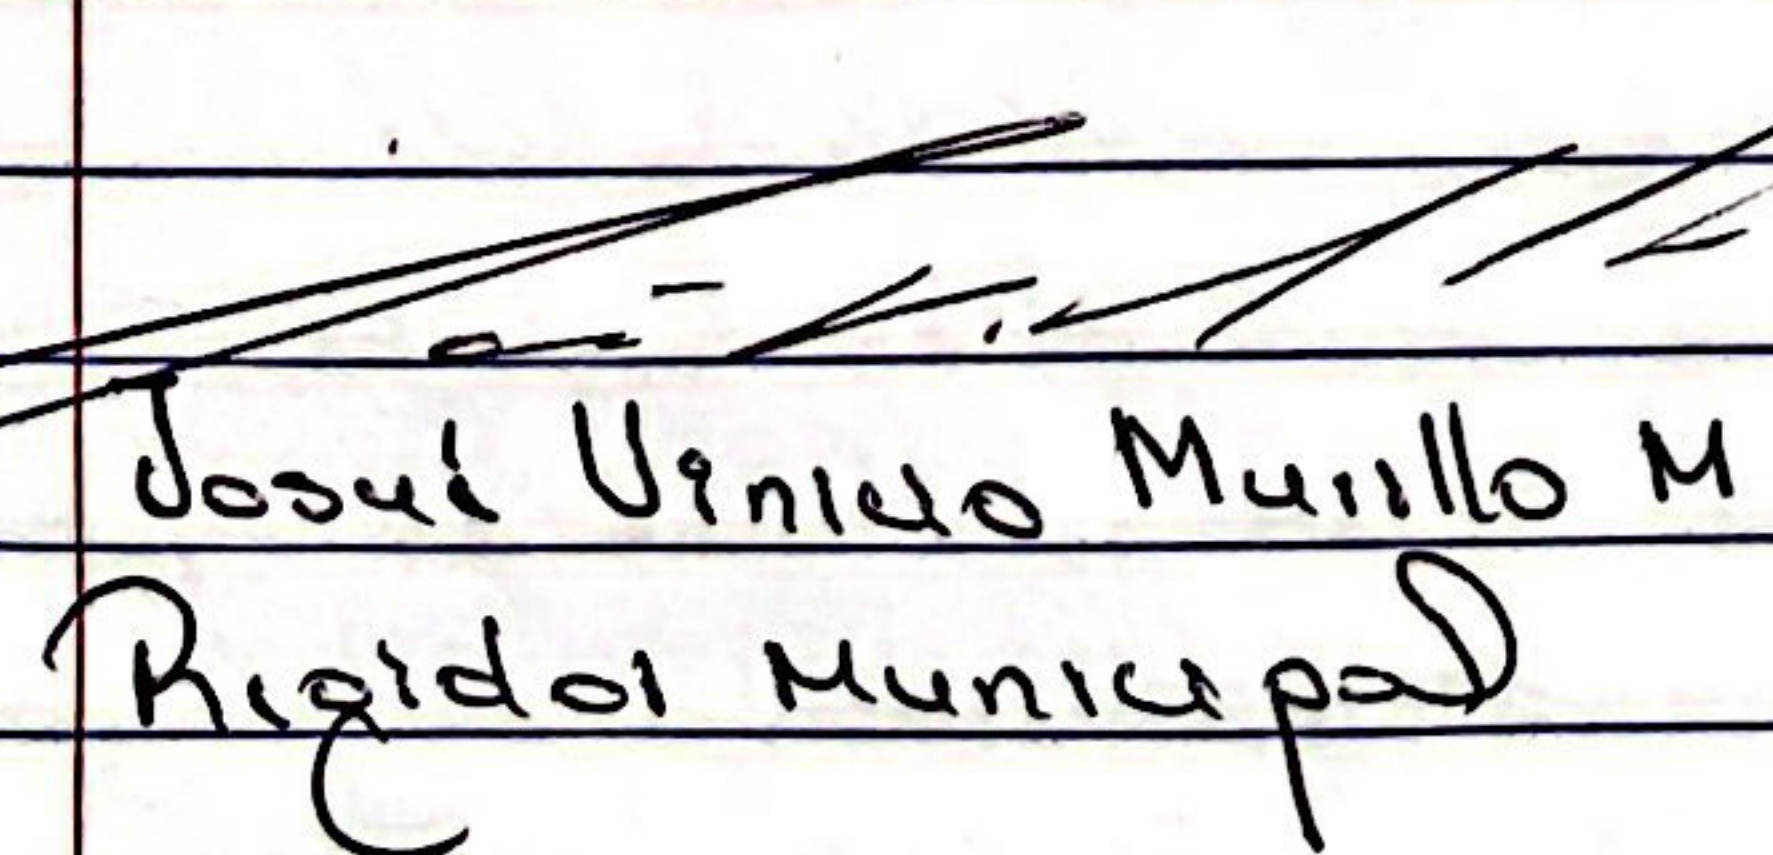 Josué Vinicio Murillo M
Regidor Municipal